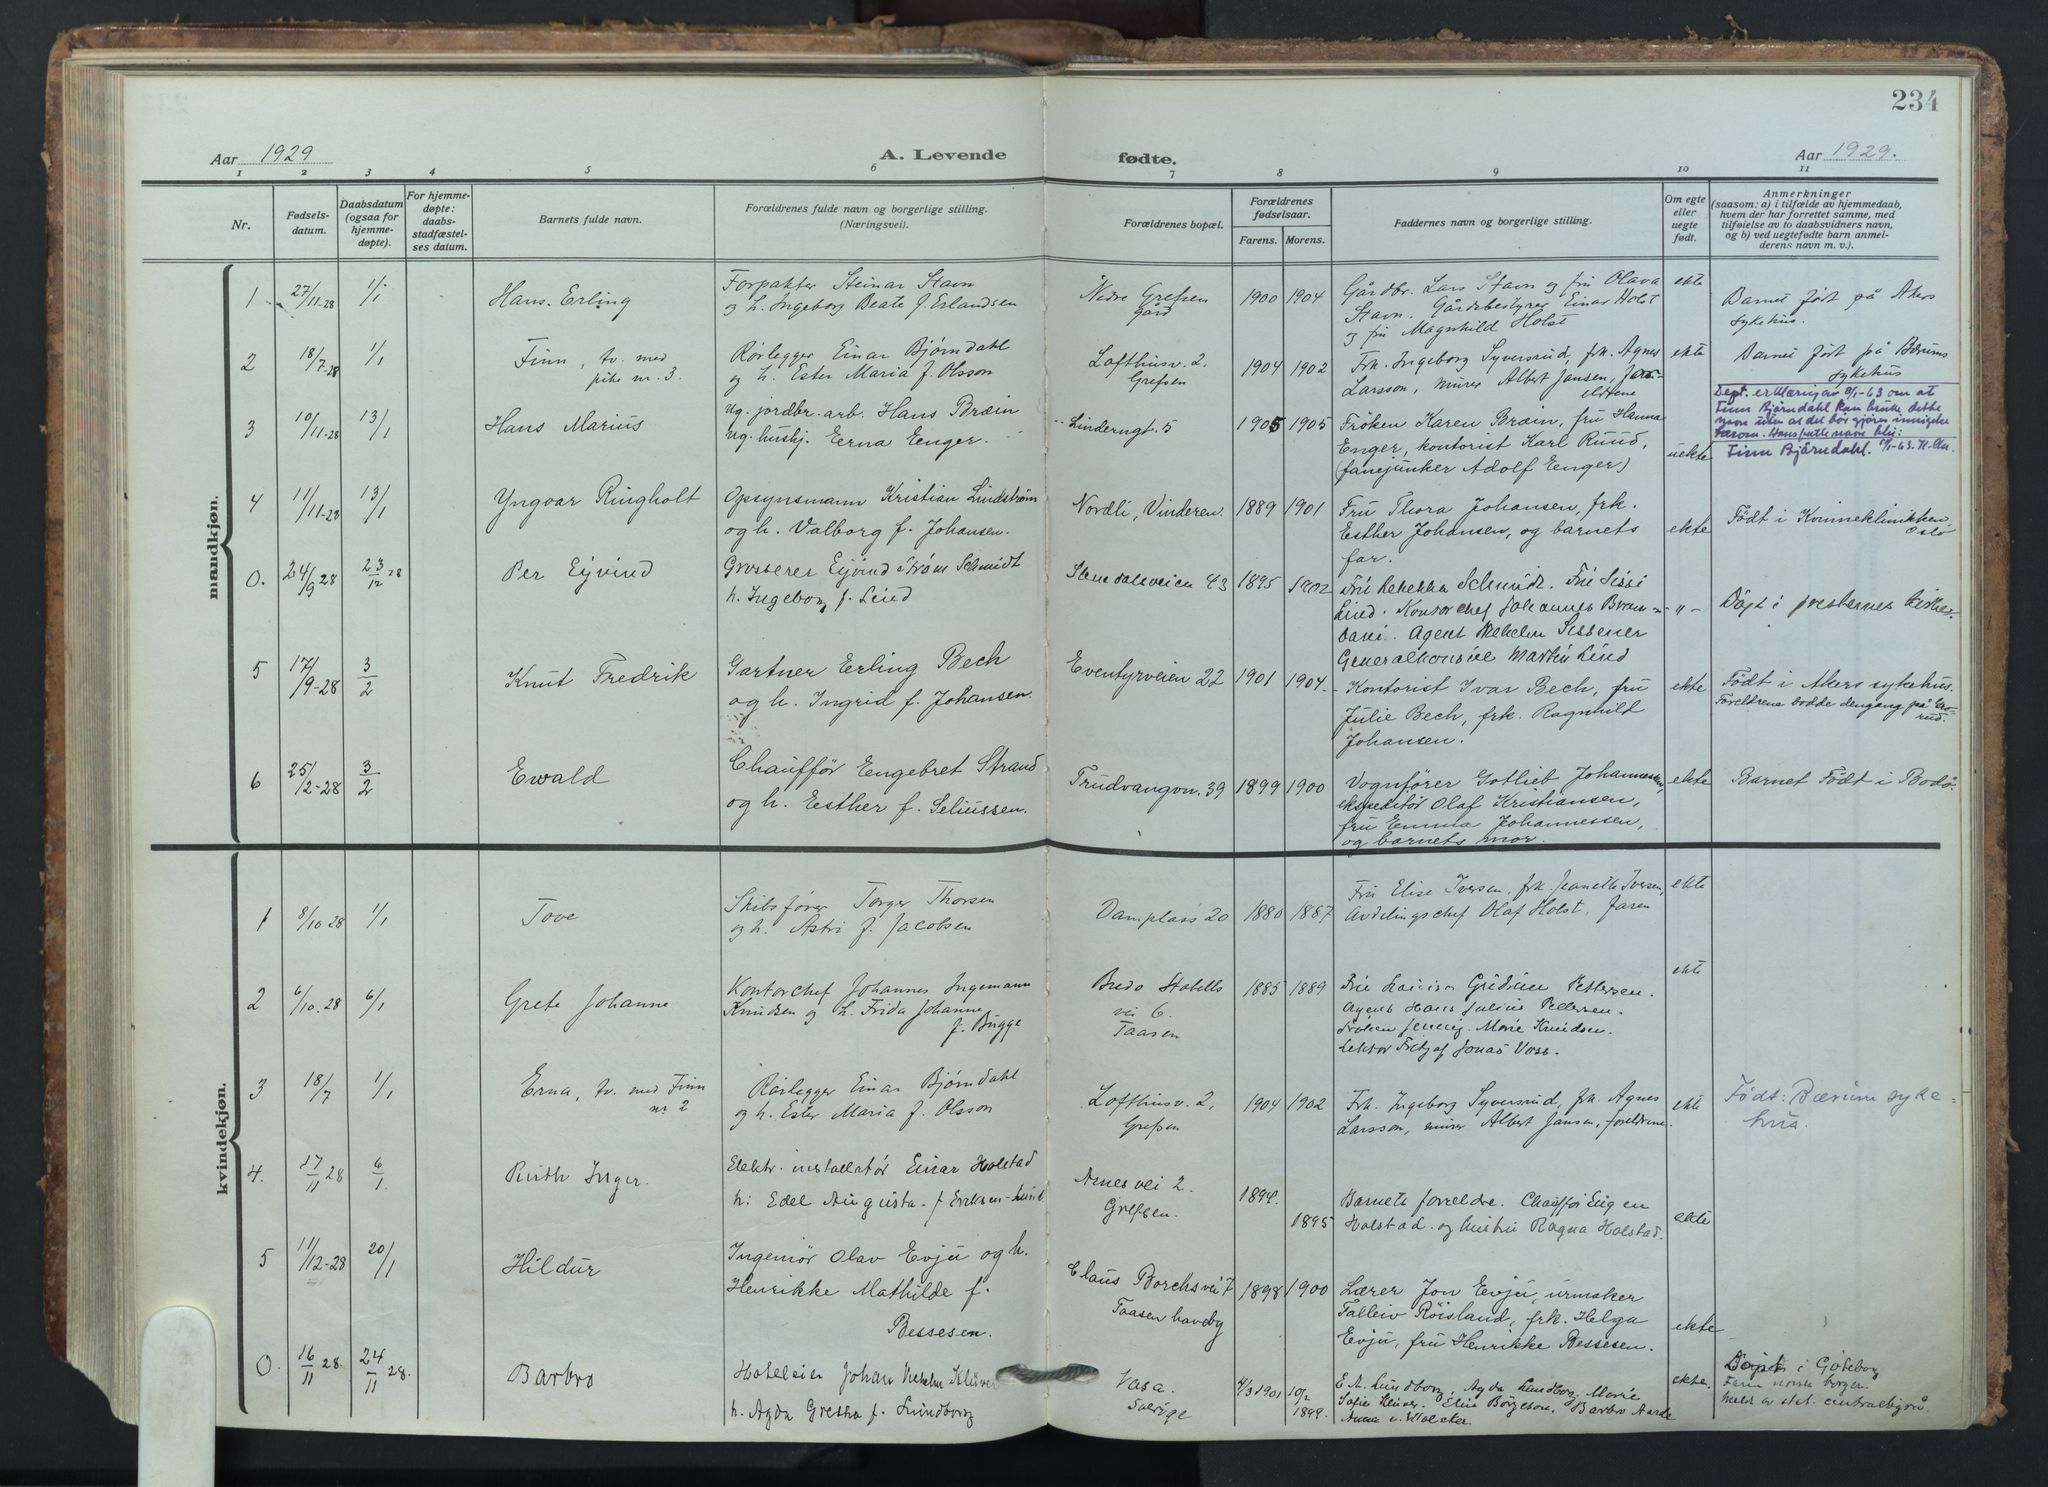 234
Aar 1929
A. Levende
fødte.
Aar 1929.
1 2 3 4 5 6 7 8 9 10 11
Nr.
Fødsels-
datum.
Daabsdatum
(ogsaa for
hjemme-
døpte).
For hjemme-
døpte:
daabs-
stadfæstel-
ses datum.
Barnets fulde navn.
Forældrenes fulde navn og borgerlige stilling.
(Næringsvei).
Forældrenes bopæl.
Forældrenes
fødselsaar.
Farens. Morens.
Faddernes navn og borgerlige stilling.
Om egte
eller
uegte
født.
Anmerkninger
(saasom: a) i tilfælde av hjemmedaab,
hvem der har forrettet samme, med
tilføielse av to daabsvidners navn,
og b) ved uegtefødte barn anmel-
derens navn m. v.).
mandkjøn.
1
27/11-28
1/1
Hans Erling
Forpakter Steinar Stavn
og h. Ingeborg Beate f. Erlandsen
Nedre Grefsen
Gård
1900 1904
Gårdbr. Lars Stavn og fru Olava
Stavn. Gårdsbestyrer Einar Holst
og fru Magnhild Holst
ekte
Barnet født på Akers
sykehus.
2
18/7-28
1/1
Finn, tv. med
pike nr. 3.
Rørlegger Einar Bjørndahl
og h. Ester Maria f. Olsson
Lofthusv. 2.
Grefsen
1904 1902
Frk. Ingeborg Syversrud, frk. Agnes
Larsson, murer Albert Jansen, for-
eldrene
ekte
Barnet født på Bærums
sykehus
Dept. erklæring av 8/1-63 om at
Finn Bjørndahl kan bruke dette
navn uten at det bør gjøres
Hans fulle navn blir:
Finn Bjørndahl.
3
10/11-28
13/1
Hans Marius
Ug. jordbr. arb. Hans Bræin
ug. hushj. Erna Enger.
Linderngt. 5
1905 1905
Frøken Karen Bræin, fru Hanna
Enger, kontorist Karl Ruud,
(fanejunker Adolf Enger)
uekte
4
11/11-28
13/1
Yngvar Ringholt
Opsynsmann Kristian Lindstrøm
og h. Valborg f. Johansen.
Nordli, Vinderen.
1889 1901
Fru Thora Johansen, frk.
Esther Johansen, og barnets
far.
ekte
Født i Kvinneklinikken,
Oslo
0.
24/9 28
23/12 28
Per Eyvind
Grosserer Eyvind Strøm Schmidt
h. Ingeborg f. Lind
43
1895 1902
Fru Rebekka Schmidt. Fru Sissi
Lind. Kontorchef Johannes
Agent Vilhelm Sissener
Generalkonsul Martin Lind
- " -
Døpt i presternes kirke.
5
17/9-28
3/2
Knut Fredrik
Gartner Erling Bech
og h. Ingrid f. Johansen.
Eventyrveien 22
1901 1904
Kontorist Ivar Bech, fru
Julie Bech, frk. Ragnhild
Johansen.
ekte
Født i Akers sykehus.
Foreldrene bodde dengang på Gro-
rud.
6
25/2-28
3/2
Ewald
Chauffør Engebret Strand
og h. Esther f. Seliussen.
Trudvangvn. 39
1899 1900
Vognfører Gotlieb Johannessen,
ekspeditør Olaf Kristiansen,
fru Emma Johannessen,
og barnets mor.
ekte
Barnet Født i Bodø.
kvindekjøn.
1
8/10 28
1/1
Tove
Skibsfører Torger Thorsen
og h. Astri f. Jacobsen
Damplass 20
1880 1887
Fru Elise Iversen, frk. Jeanette Iversen,
Avdelingschef Olaf Holst, faren
ekte
2
6/10. 28
6/1
Grete Johanne
Kontorchef Johannes Ingemann
Knudsen og h. Frida Johanne
f. Bugge
Bredo Stabells
vei 6.
Taasen
1885 1889
Fru Pettersen.
Agent Hans Julius Pettersen.
Frøken Jenny Marie Knudsen.
Lektor Fritjof Jonas Voss.
ekte
3
18/7
1/1
Erna, tv. med Finn
nr 2
Rørlegger Einar Bjørndahl
og h. Ester Maria f. Olsson
Lofthusv. 2,
Grefsen
1904 1902
Frk. Ingeborg Syversrud, frk. Agnes
Larsson, murer Albert Jansen, foreldrene.
ekte
Født: Bærum syke-
hus.
4.
17/11 28
6/1.
Ruth Inger.
Elektr. installatør Einar Holstad
h: Edel Augusta f Eriksen-Lund
Arnes vei 2.
Grefsen.
1894. 1895
Barnets foreldre. Chauffør Eugen
Holstad og hustru Ragna Holstad.
ekte
5
11/12-28
20/1
Hildur
Ingeniør Olav Evju og h.
Henrikke Mathilde f.
Bessesen.
Claus Borchsvei 7
Taasen haveby
1898 1900
Lærer Jon Evju, urmaker
Talleiv Röisland, frk. Helga
Evju, fru Henrikke Bessesen.
ekte
0.
16/11 28
24/11 28.
Barbro
Hoteleier Johan Vilhelm Klüver
h. Agda Gretha f. Lundborg
Vasa.
Sverige
4/3 1901 10/2 1899.
E A. Lundborg, Agda Lundborg, Marie
Sofie Klüver. Elin Börgeson, Barbro
Anna
ekte.
Døpt i Göteborg
Faren norsk borger.
Meld. av stat. centralbyrå.